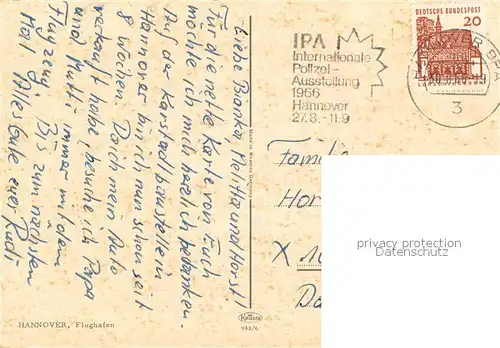 Liebe Bianka, Melitta und Horst!
Für die nette Karte von Euch
möchte ich mich herzlich bedanken.
Auf der Karstadtbaustelle in
Hannover bin ich nun schon seit
8 Wochen. Da ich mein Auto
verkauft habe, besuche ich Papa
und Mutti immer mit dem
Flugzeug. Bis zum nächsten
Mal, Alles Gute euer Rudi
HANNOVER, Flughafen
Krüger
943/6
IPA
Internationale
Polizei-
Ausstellung
1966
Hannover
27.8.-11.9
DEUTSCHE BUNDESPOST
20
3
Familie
Hor
X
Da
privacy protection
Datenschutz